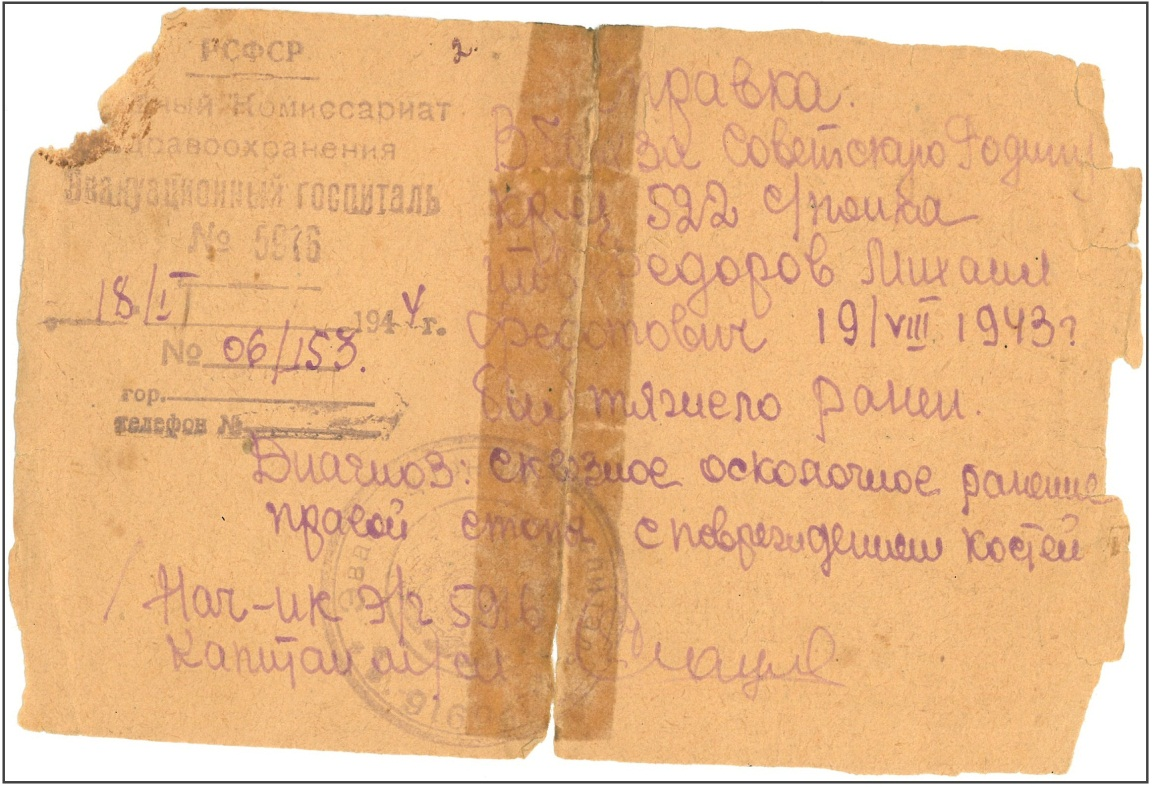 РСФСР
2.
Комиссариат
Здравоохранения
Эвакуационный госпиталь
№ 5976
18/I 1944г.
№ 06/153.
гор.
телефон №
Справка.
В боях за Советскую Родину
кр-ец 522 с/полка
Федоров Михаил
Федотович 19/VIII 1943г
был тяжело ранен.
Диагноз: сквозное осколочное ранение
правой стопы с повреждением костей
Нач-ик Э/г 5976
Капитан м/сл